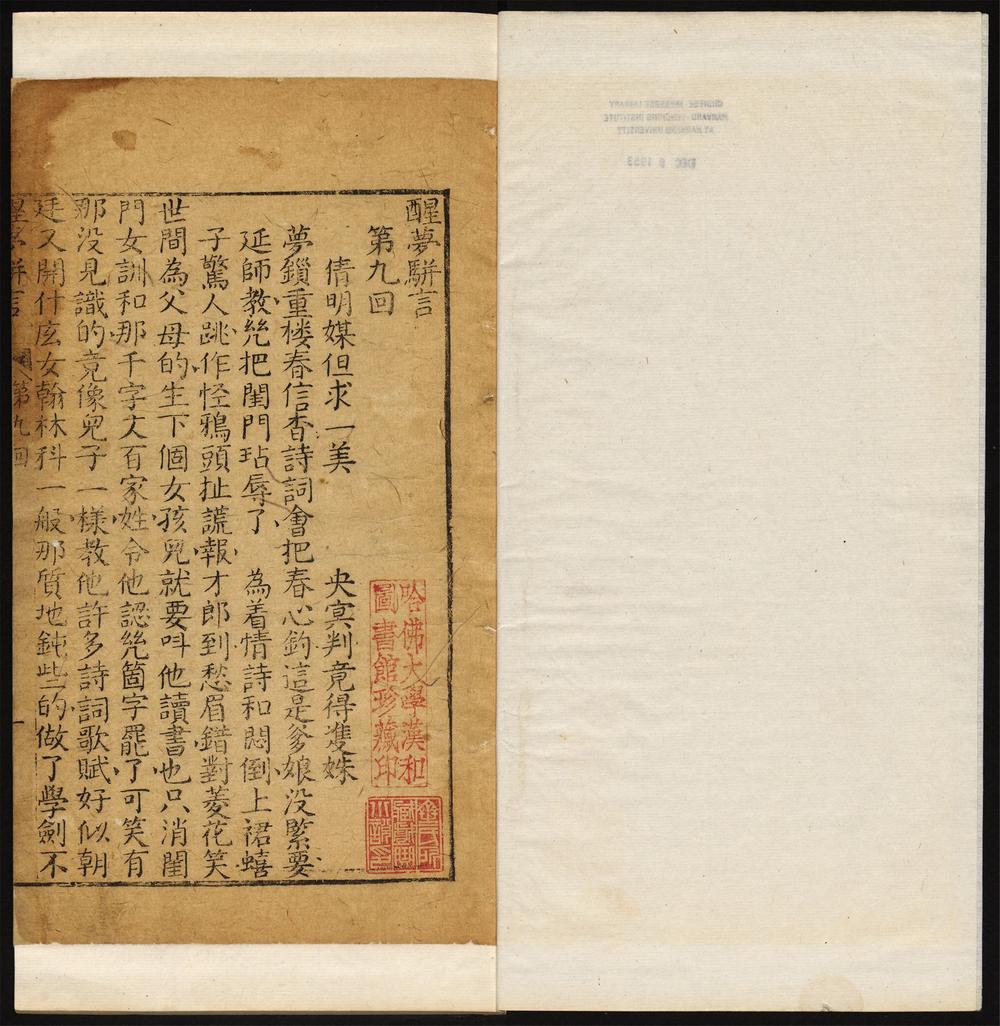 醒夢駢言
第九回
倩明媒但求一美　央冥判竟得雙姝
夢鎖重楼春信杳詩詞會把春心鈎這是爹娘没緊要
延師教㡬把閨門玷辱了　為着情詩和悶倒上裙蟢
子驚人跳作怪鴉頭扯謊報才郎到愁眉錯對菱花笑
世間為父母的生下個女孩兒就要呌他讀書也只消閨
門女訓和那千字文百家姓令他認㡬箇字罷了可笑有
那没見識的竟像兒子一樣教他許多詩詞歌賦好似朝
廷又開什庅女翰林科一般那質地鈍些的做了學劍不
醒夢駢言　第九回　一
哈佛大學漢和
圖書館珍藏印
齊氏所
藏戲曲
小說印
CHINESE-JAPANESE LIBRARY
HARVARD-YENCHING INSTITUTE
AT HARVARD UNIVERSITY
DEC 8 1953